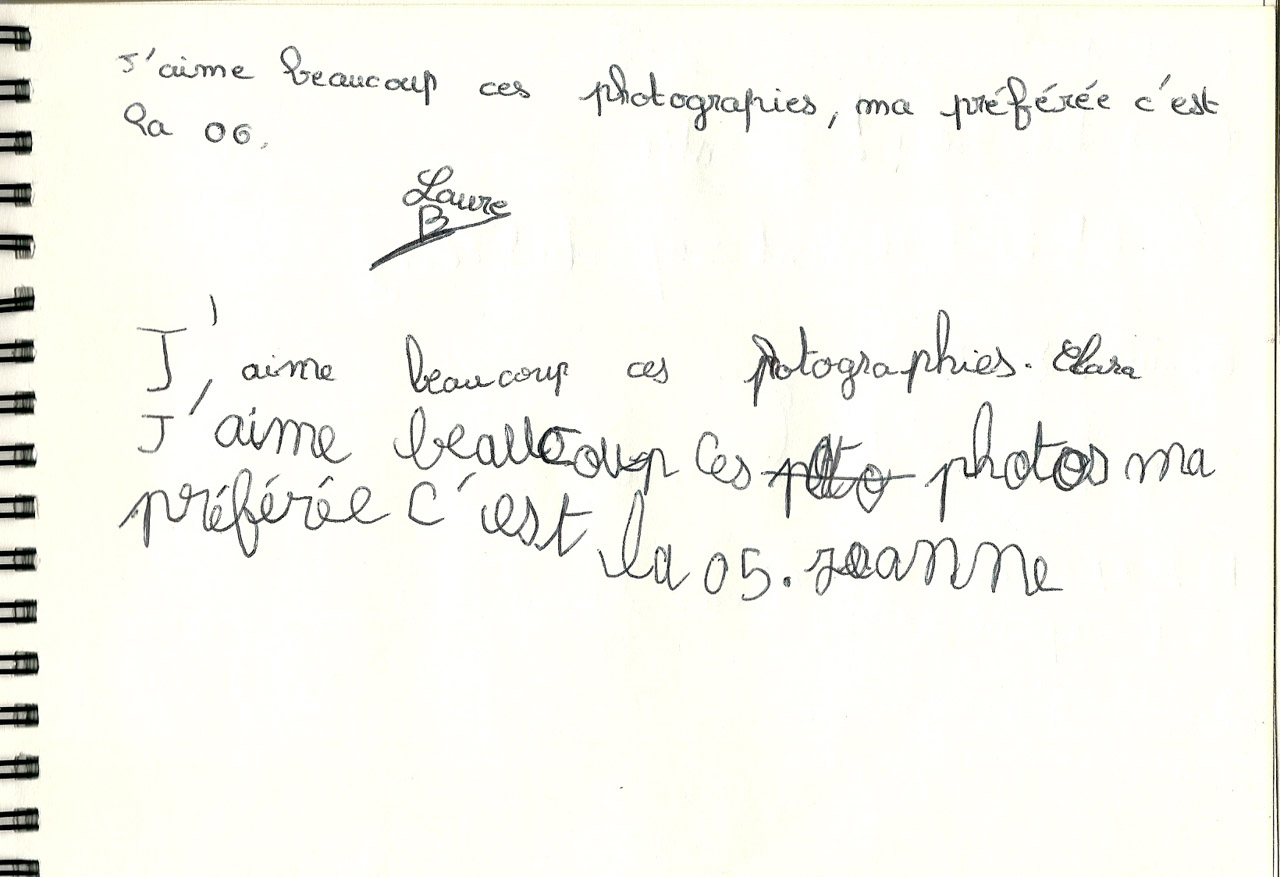 J'aime beaucoup ces photograpies, ma préférée c'est
la 06.
Laure
B
J'aime beaucoup ces potographies. Clara
J'aime beaucoup ces photos ma
préférée c'est la 05. Jeanne